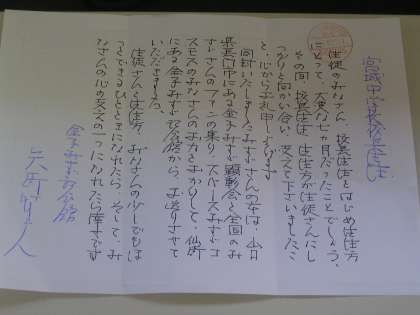 宮城中学校校長先生
生徒のみなさん、校長先生をはじめ先生方
にとって、大変な七ヵ月だったことでしょう。
その間、校長先生、先生方が生徒さんにし
っかりと向かい合い、支えて下さいましたこ
と、心からお礼申し上げます
同封いたしましたみすゞさんの本は、山口
県長門市にある金子みすゞ顕彰会と全国のみ
すゞさんのファンの集り、スペースみすゞコ
スモスのみなさんのお力をおかりして、仙崎
にある金子みすゞ記念館から、お送りさせて
いただきました。
生徒さんと先生方、みなさんの少しでもほ
っとできるひとときになれたら、そして、み
なさんの心の支えの一つになれたら幸いです
金子みすゞ記念館